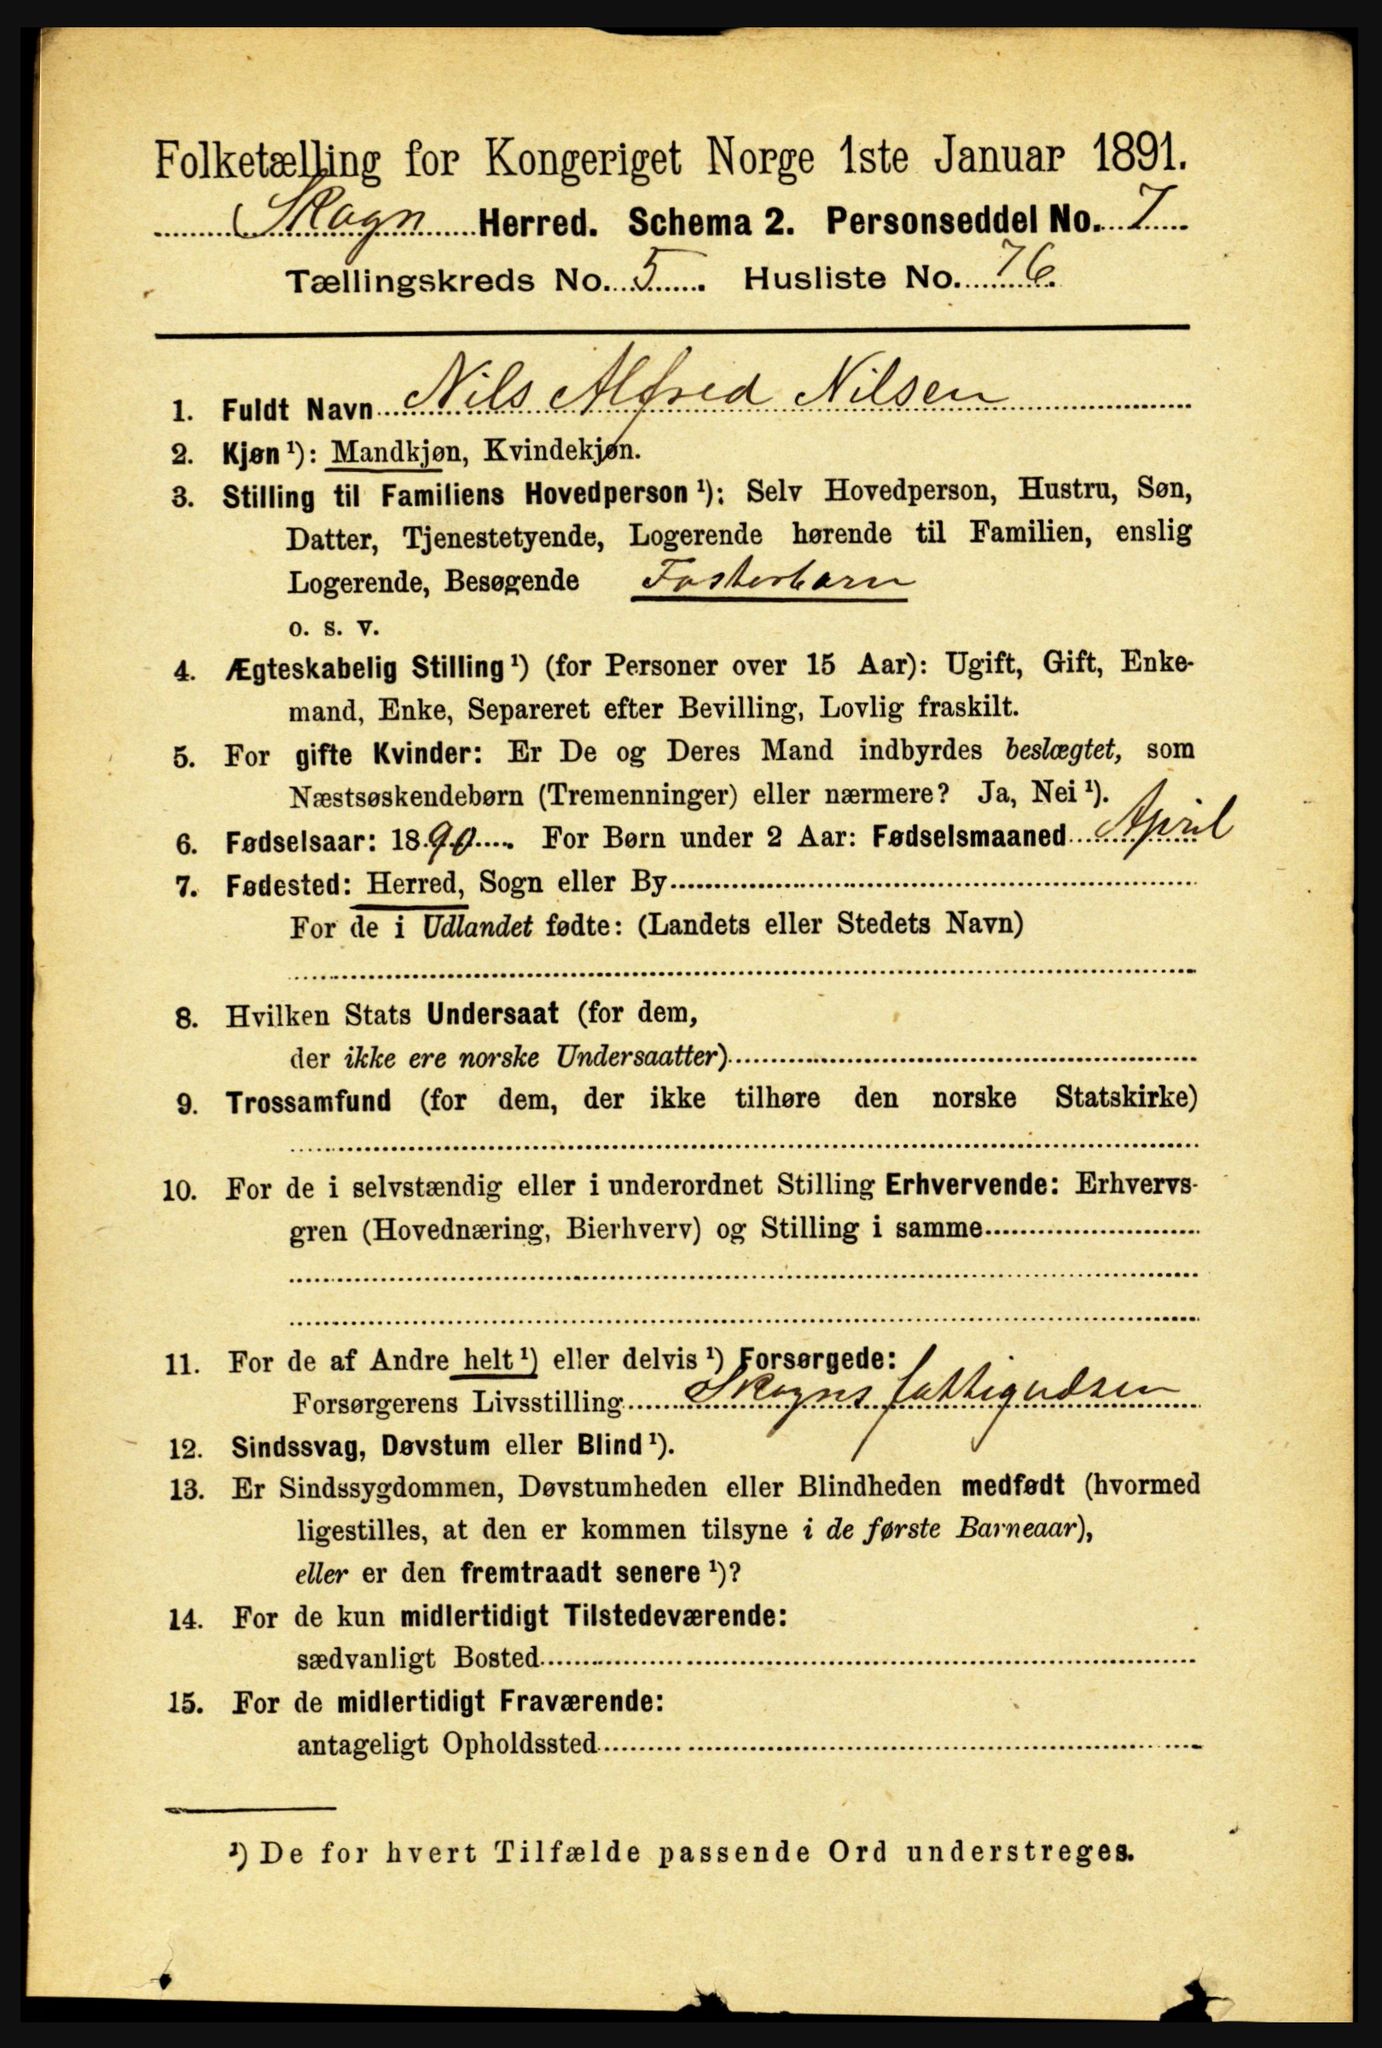 Folketælling for Kongeriget Norge 1ste Januar 1891.
Skogn Herred. Schema 2. Personseddel No. 7
Tællingskreds No. 5. Husliste No. 76
1. Fuldt Navn Nils Alfred Nilsen
2. Kjøn ¹): Mandkjøn, Kvindekjøn.
3. Stilling til Familiens Hovedperson ¹): Selv Hovedperson, Hustru, Søn,
Datter, Tjenestetyende, Logerende hørende til Familien, enslig
Logerende, Besøgende Fosterbarn
o. s. v.
4. Ægteskabelig Stilling ¹) (for Personer over 15 Aar): Ugift, Gift, Enke-
mand, Enke, Separeret efter Bevilling, Lovlig fraskilt.
5. For gifte Kvinder: Er De og Deres Mand indbyrdes beslægtet, som
Næstsøskendebørn (Tremenninger) eller nærmere? Ja, Nei ¹).
6. Fødselsaar: 1890. For Børn under 2 Aar: Fødselsmaaned April
7. Fødested: Herred, Sogn eller By
For de i Udlandet fødte: (Landets eller Stedets Navn)
8. Hvilken Stats Undersaat (for dem,
der ikke ere norske Undersaatter)
9. Trossamfund (for dem, der ikke tilhøre den norske Statskirke)
10. For de i selvstændig eller i underordnet Stilling Erhvervende: Erhvervs-
gren (Hovednæring, Bierhverv) og Stilling i samme
11. For de af Andre helt ¹) eller delvis ¹) Forsørgede:
Forsørgerens Livsstilling Skogns fattigvæsen
12. Sindssvag, Døvstum eller Blind ¹).
13. Er Sindssygdommen, Døvstumheden eller Blindheden medfødt (hvormed
ligestilles, at den er kommen tilsyne i de første Barneaar),
eller er den fremtraadt senere ¹)?
14. For de kun midlertidigt Tilstedeværende:
sædvanligt Bosted
15. For de midlertidigt Fraværende:
antageligt Opholdssted
¹) De for hvert Tilfælde passende Ord understreges.